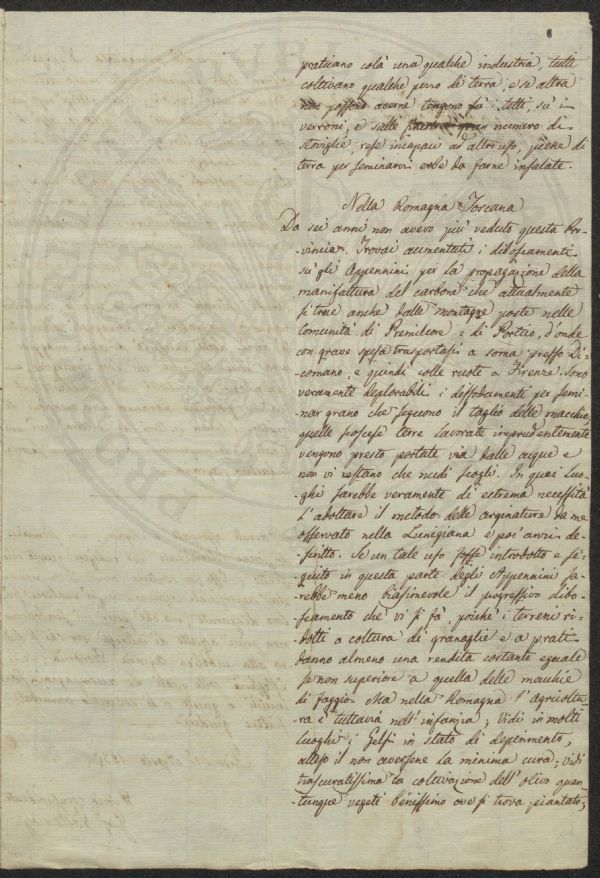 praticano colà una qualche industria, tutti
coltivano qualche pezzo di terra, e se altra
non possono averne tengono sù i tetti, sù i
verroni, e sulle gran numero di
stoviglie, rese incapaci ad altro uso, piene di
terra per seminarvi erbe da farne insalate.
Nella Romagna Toscana
Da sei anni non avevo più veduto questa Pro-
-vincia. Trovai aumentati i diboscamenti
sù gli Appennini per la propagazione della
manifattura del carbone che attualmente
si trae anche dalle montagne poste nelle
Comunità di Premilcore e di Portico, d'onde
con grave spesa trasportasi a soma presso Di-
comano, e quindi colle ruote a Firenze. Sono
veramente deplorabili i dissodamenti per semi-
nar grano che seguono il taglio delle macchie,
quelle scoscese terre lavorate imprudentemente
vengono presto portate via dalle acque e
non vi restano che nudi scogli. In quei luo-
-ghi sarebbe veramente di estrema necessità
l'adottare il metodo delle arginature da me
osservato nella Lunigiana e poc'anzi de-
scritto. Se un tale uso fosse introdotto e se-
guito in questa parte degli Appennini sa-
rebbe meno biasimevole il progressivo dibo-
scamento che vi si fà, poichè i terreni ri-
dotti a coltura di granaglie e a prati
danno almeno una rendita costante eguale
se non superiore a quella delle macchie
di faggio. Ma nella Romagna l'agricoltu-
ra è tuttavia nell'infanzia; Vidi in molti
luoghi i Gelsi in stato di deperimento,
atteso il non aversene la minima cura; vidi
trascuratissima la coltivazione dell'olivo quan-
-tunque vegeti benissimo ove si trova piantato;